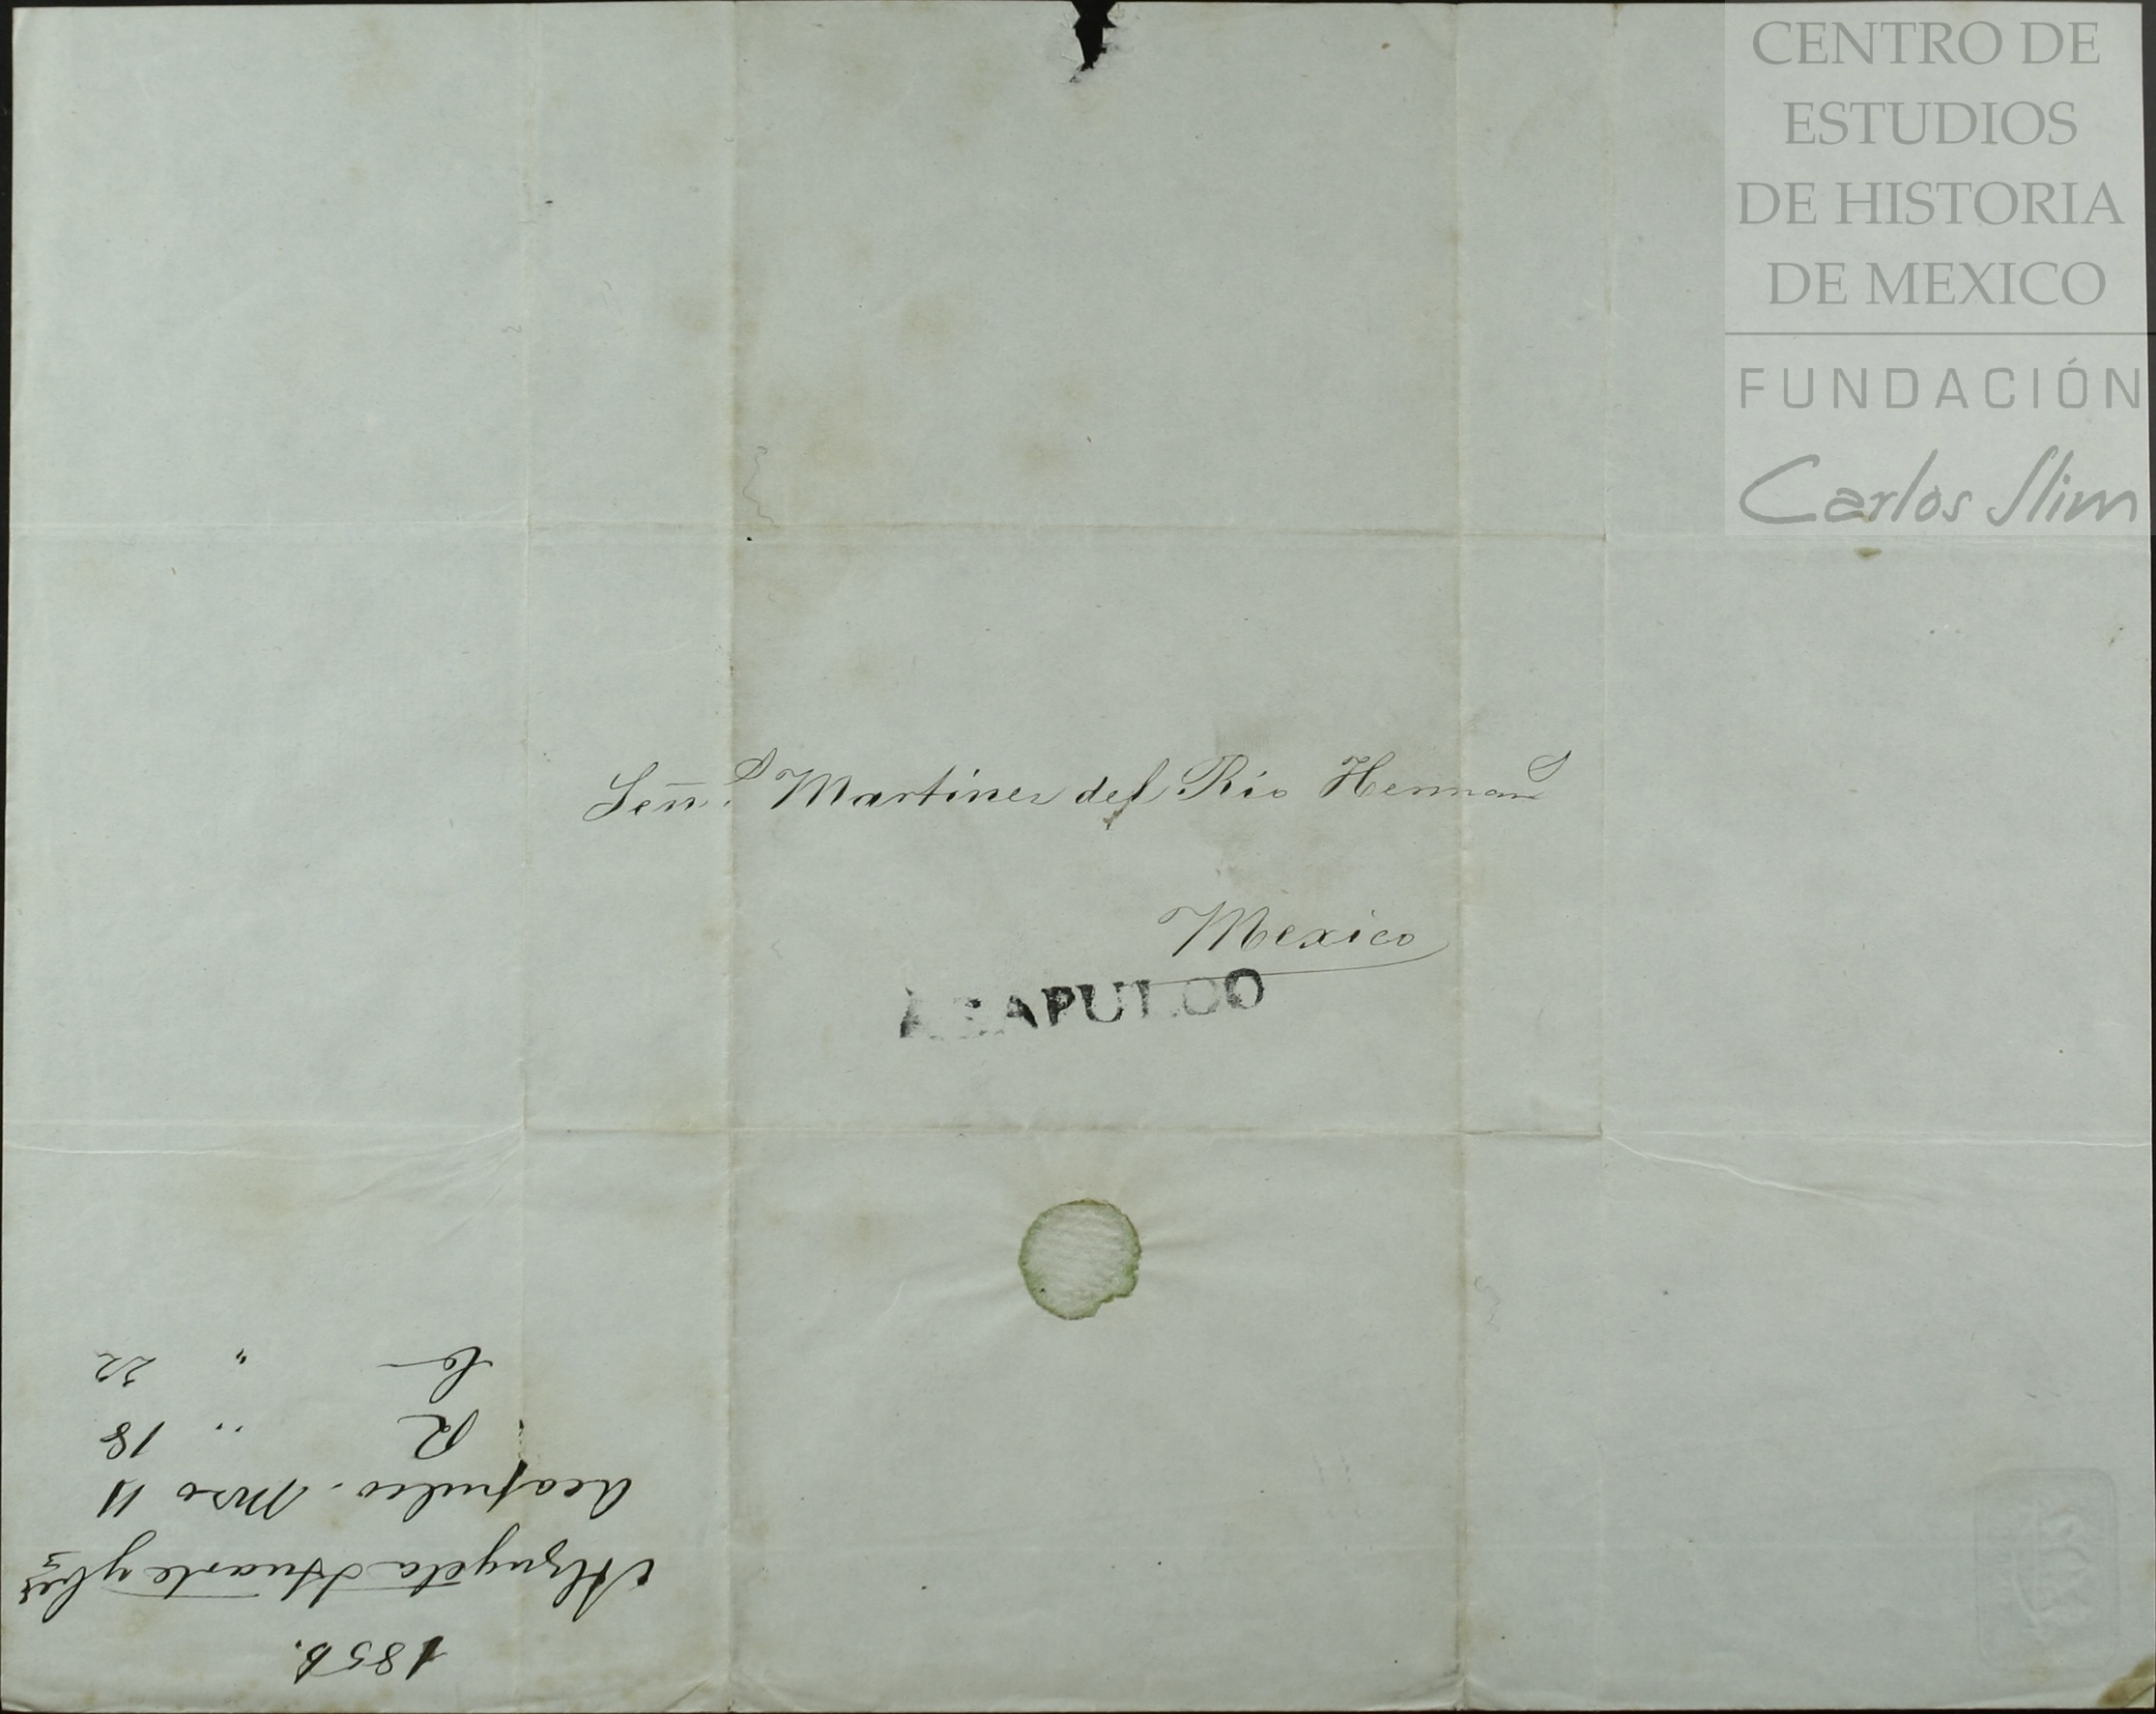 CENTRO DE
ESTUDIOS
DE HISTORIA
DE MEXICO
FUNDACIÓN
Carlos Slim
Señ.s Martinez del Rio Herman.s
Mexico
ACAPULCO
1856.
Alzuyeta Huarte y Cª
Acapulco. Mzo 11
R " 18
C " 22